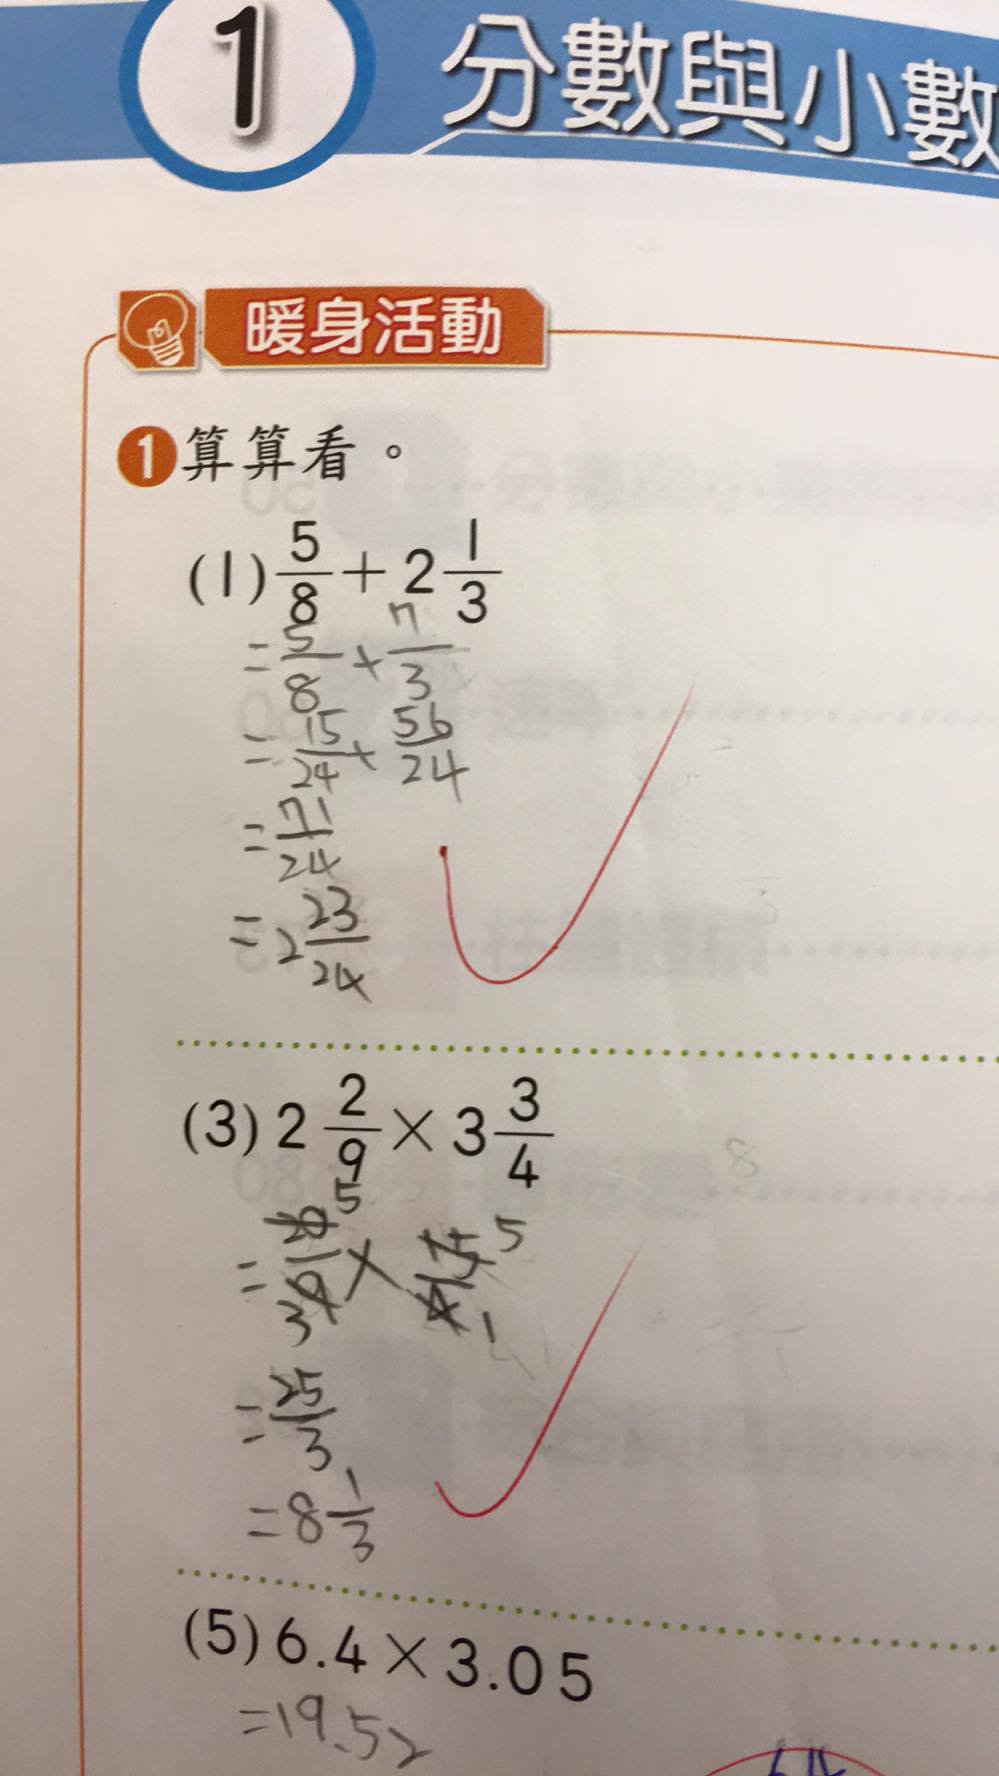 1 分數與小數
暖身活動
1 算算看。
(1) 5/8 + 2 1/3
= 5/8 + 7/3
= 15/24 + 56/24
= 71/24
= 2 23/24
(3) 2 2/9 × 3 3/4
= 20/9 × 15/4 5 5 3 1
= 25/3
= 8 1/3
(5) 6.4 × 3.05
= 19.52